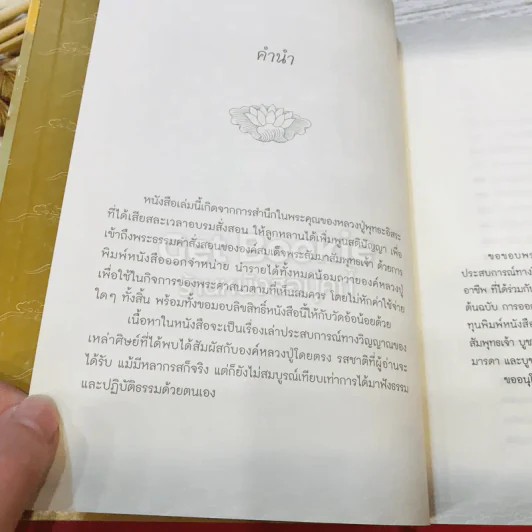 คำนำ
หนังสือเล่มนี้เกิดจากการสำนึกในพระคุณของหลวงปู่พุทธะอิสระ
ที่ได้เสียสละเวลาอบรมสั่งสอน ให้ลูกหลานได้เพิ่มพูนสติปัญญา เพื่อ
เข้าถึงพระธรรมคำสั่งสอนขององค์สมเด็จพระสัมมาสัมพุทธเจ้า ด้วยการ
พิมพ์หนังสือออกจำหน่าย นำรายได้ทั้งหมดน้อมถวายองค์หลวงปู่
เพื่อใช้ในกิจการของพระศาสนาตามที่เห็นสมควร โดยไม่หักค่าใช้จ่าย
ใดๆ ทั้งสิ้น พร้อมทั้งขอมอบลิขสิทธิ์หนังสือนี้ให้กับวัดอ้อน้อยด้วย
เนื้อหาในหนังสือจะเป็นเรื่องเล่าประสบการณ์ทางวิญญาณของ
เหล่าศิษย์ที่ได้พบได้สัมผัสกับองค์หลวงปู่โดยตรง รสชาติที่ผู้อ่านจะ
ได้รับ แม้มีหลากรสก็จริง แต่ก็ยังไม่สมบูรณ์เทียบเท่าการได้มาฟังธรรม
และปฏิบัติธรรมด้วยตนเอง
ขอขอบพระ
ประสบการณ์ทาง
อาชีพ ที่ได้ร่วมกัน
ต้นฉบับ การออก
ทุนพิมพ์หนังสือ
สัมพุทธเจ้า บูช
มารดา และบูช
ขออนุโ
Get Bookie